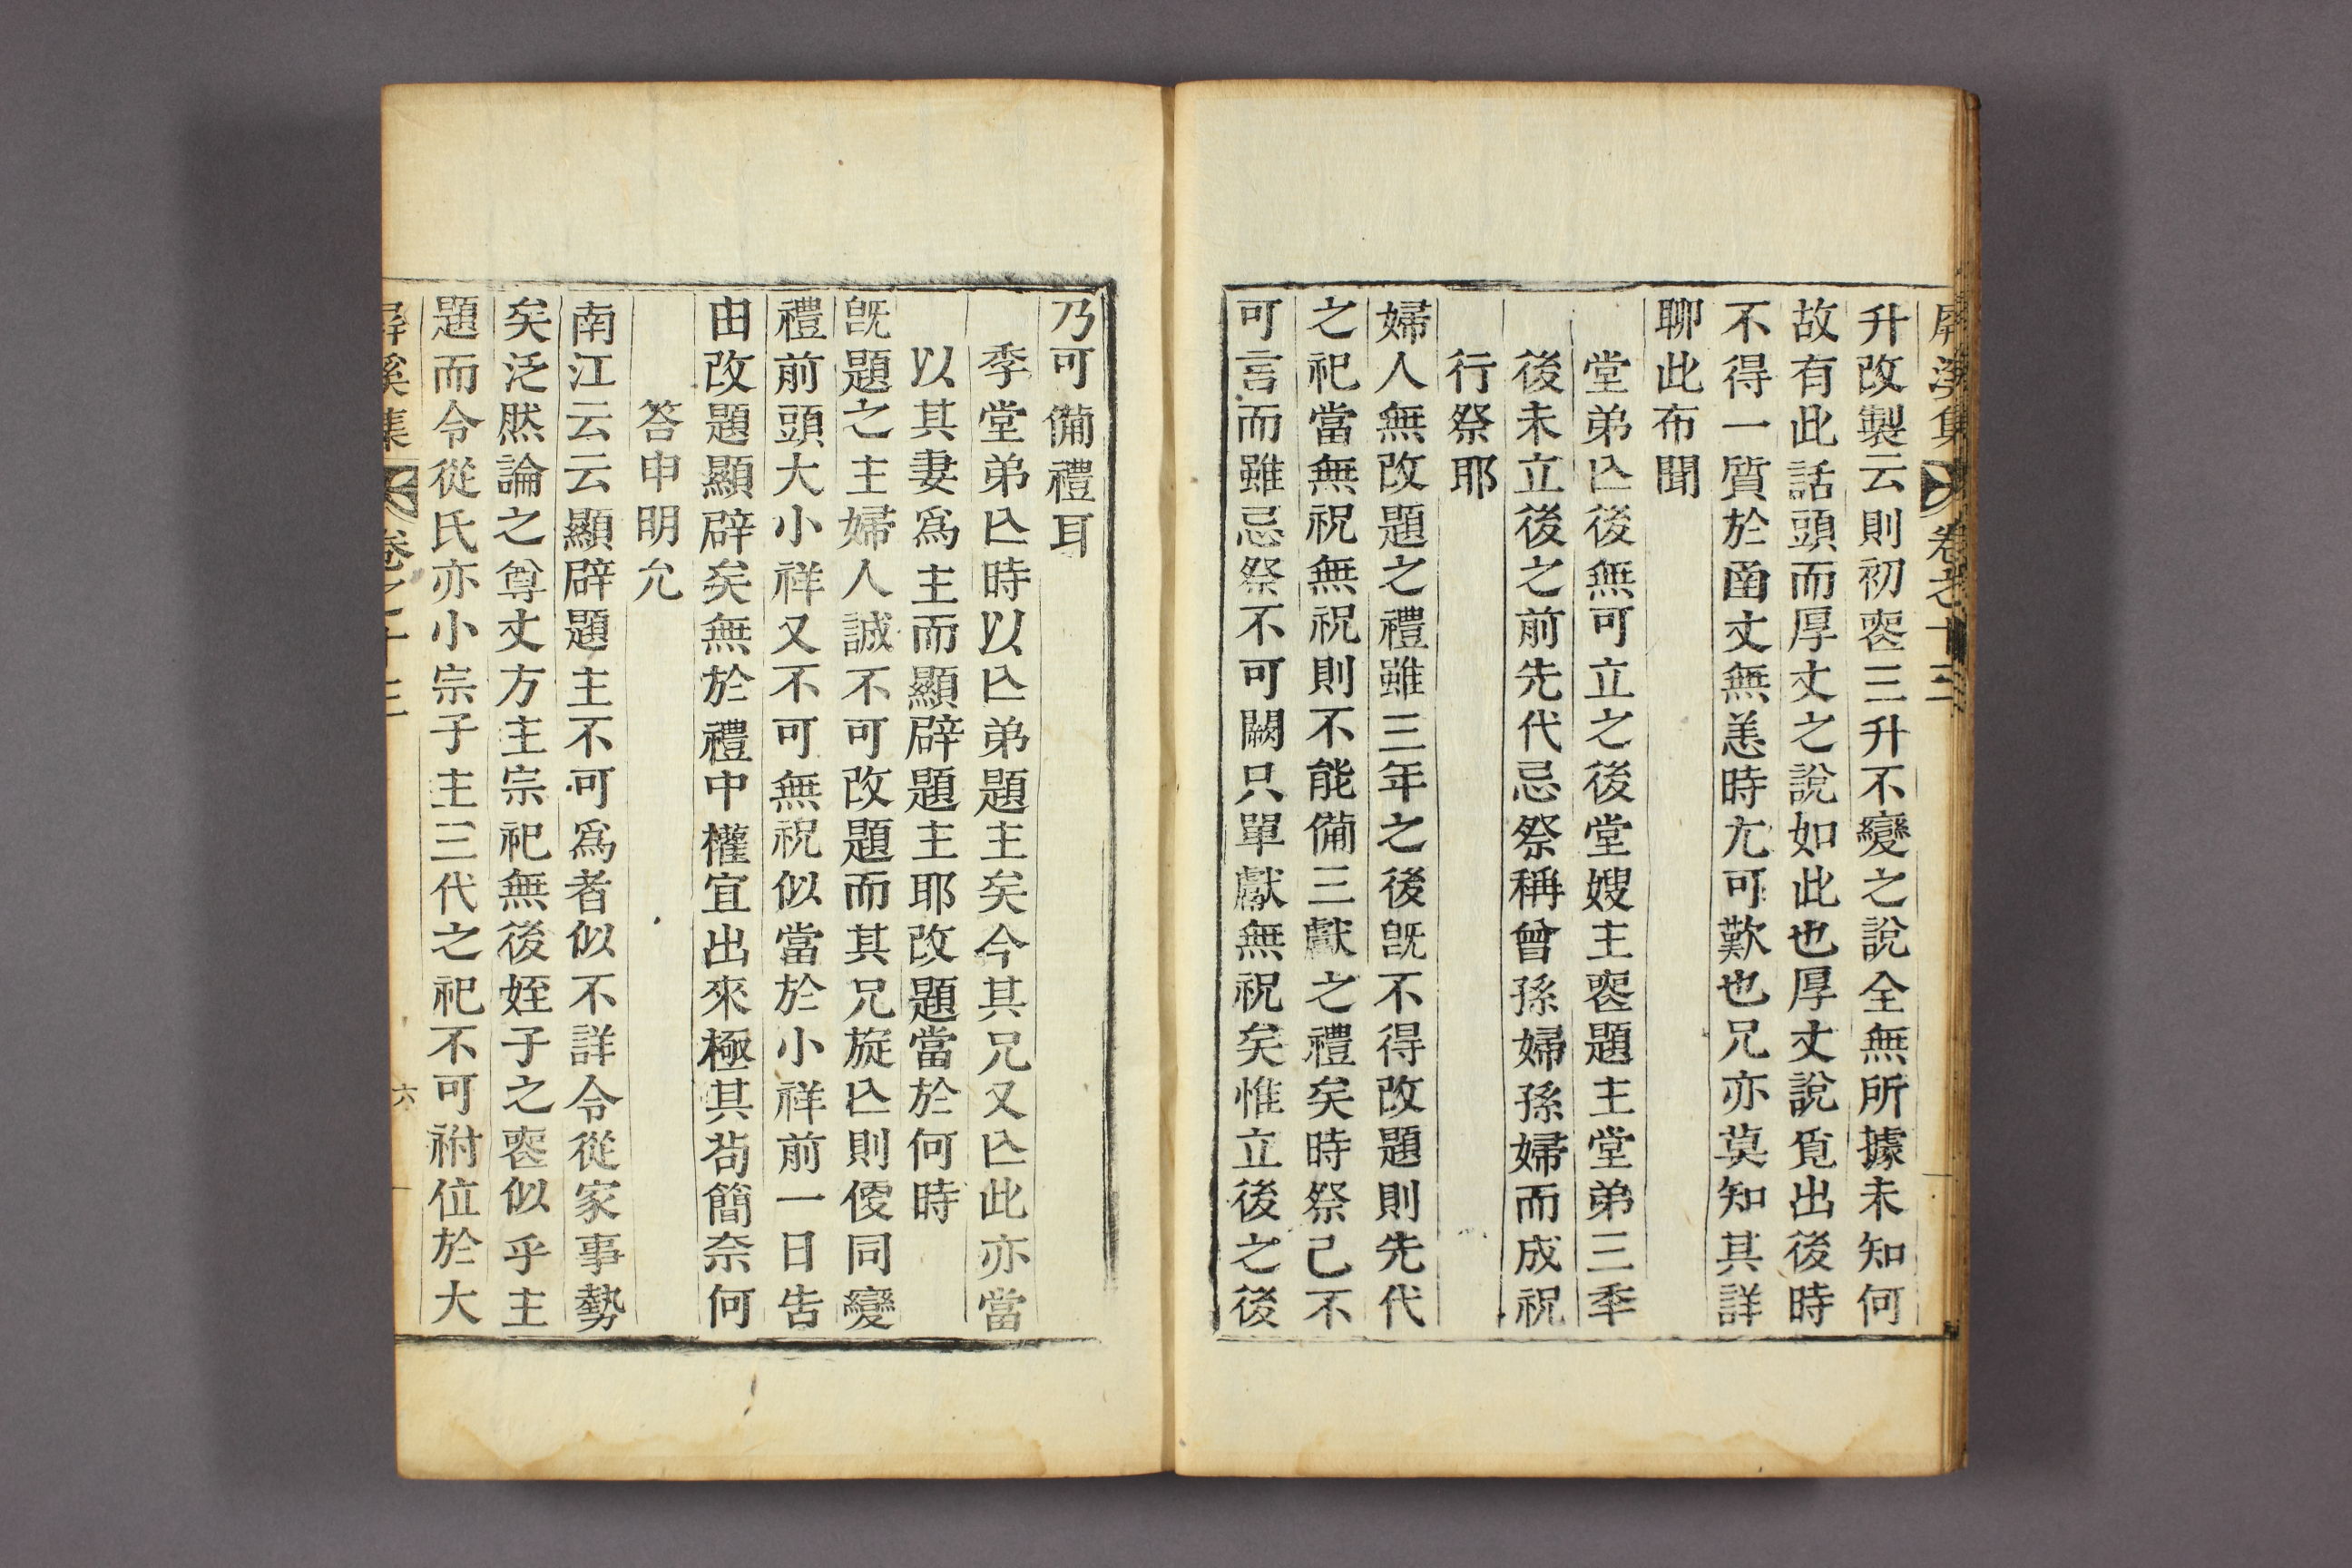 屏溪集 卷之十三
升改製云則初喪三升不變之說全無所據未知何
故有此話頭而厚丈之說如此也厚丈說覓出後時
不得一質於凾丈無恙時尢可歎也兄亦莫知其詳
聊此布聞
堂弟亾後無可立之後堂嫂主喪題主堂弟三秊
後未立後之前先代忌祭稱曾孫婦孫婦而成祝
行祭耶
婦人無改題之禮雖三年之後旣不得改題則先代
之祀當無祝無祝則不能備三獻之禮矣時祭已不
可言而雖忌祭不可闕只單獻無祝矣惟立後之後
乃可備禮耳
季堂弟亾時以亾弟題主矣今其兄又亾此亦當
以其妻爲主而顯辟題主耶改題當於何時
旣題之主婦人誠不可改題而其兄旋亾則便同變
禮前頭大小祥又不可無祝似當於小祥前一日告
由改題顯辟矣無於禮中權宜出來極其苟簡奈何
答申明允
南江云云顯辟題主不可爲者似不詳令從家事勢
矣泛然論之尊丈方主宗祀無後姪子之喪似乎主
題而令從氏亦小宗子主三代之祀不可祔位於大
屏溪集 卷之十三 六